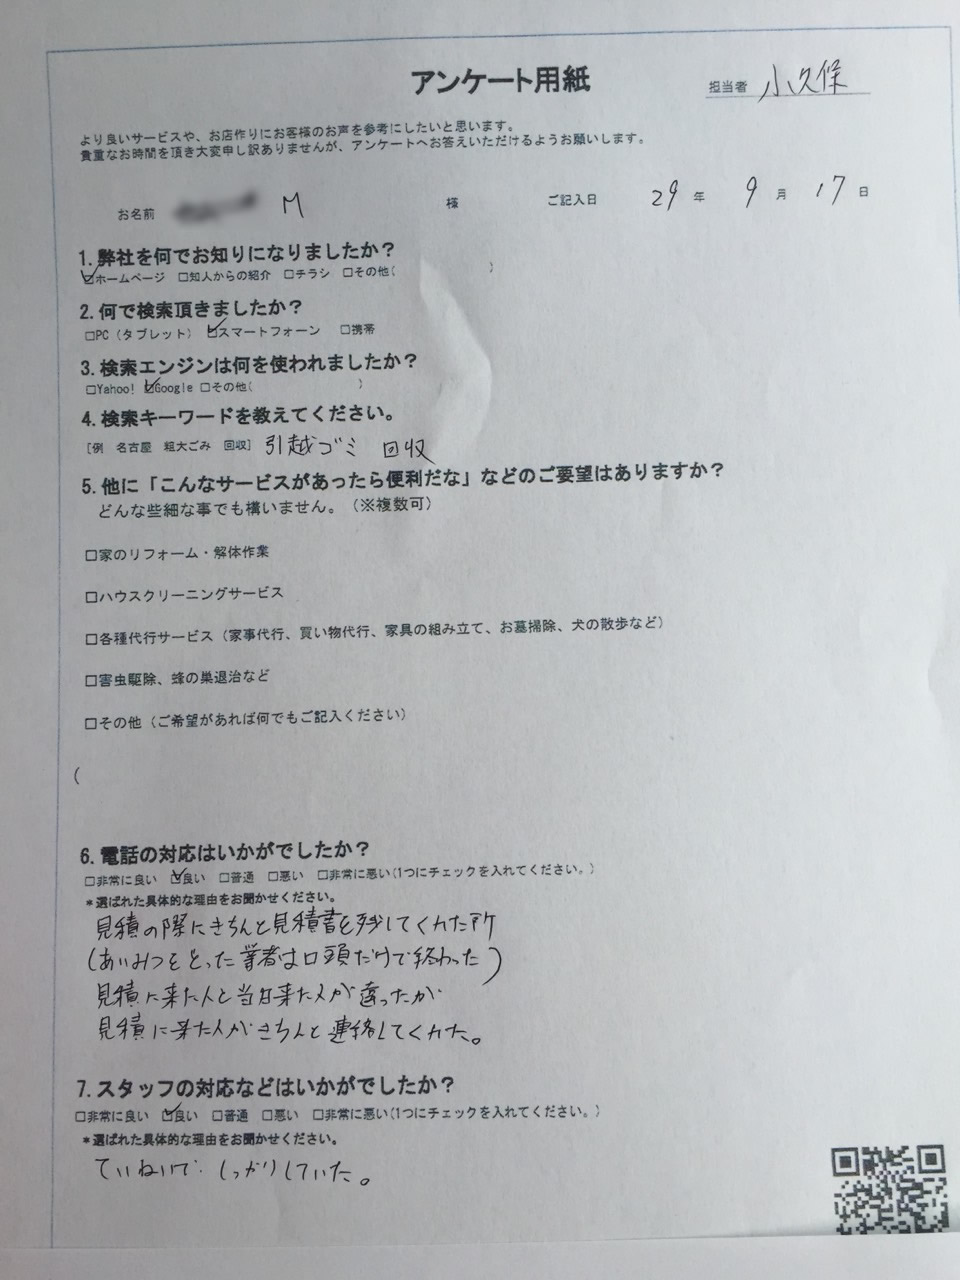 アンケート用紙
担当者 小久保
より良いサービスや、お店作りにお客様のお声を参考にしたいと思います。
貴重なお時間を頂き大変申し訳ありませんが、アンケートへお答えいただけるようお願いします。
お名前 M 様 ご記入日 29 年 9 月 17 日
1.弊社を何でお知りになりましたか？
☑ホームページ □知人からの紹介 □チラシ □その他( )
2.何で検索頂きましたか？
□PC（タブレット） ☑スマートフォーン □携帯
3.検索エンジンは何を使われましたか？
□Yahoo! ☑Google □その他( )
4.検索キーワードを教えてください。
[例 名古屋 粗大ごみ 回収] 引越ゴミ 回収
5.他に「こんなサービスがあったら便利だな」などのご要望はありますか？
どんな些細な事でも構いません。（※複数可）
□家のリフォーム・解体作業
□ハウスクリーニングサービス
□各種代行サービス（家事代行、買い物代行、家具の組み立て、お墓掃除、犬の散歩など）
□害虫駆除、蜂の巣退治など
□その他（ご希望があれば何でもご記入ください）
(
6.電話の対応はいかがでしたか？
□非常に良い ☑良い □普通 □悪い □非常に悪い(1つにチェックを入れてください。)
*選ばれた具体的な理由をお聞かせください。
見積の際にきちんと見積書を残してくれた所
(あいみつをとった業者は口頭だけで終わった)
見積に来た人と当日来た人が違ったが
見積に来た人がきちんと連絡してくれた。
7.スタッフの対応などはいかがでしたか？
□非常に良い ☑良い □普通 □悪い □非常に悪い(1つにチェックを入れてください。)
*選ばれた具体的な理由をお聞かせください。
ていねいで しっかりしていた。